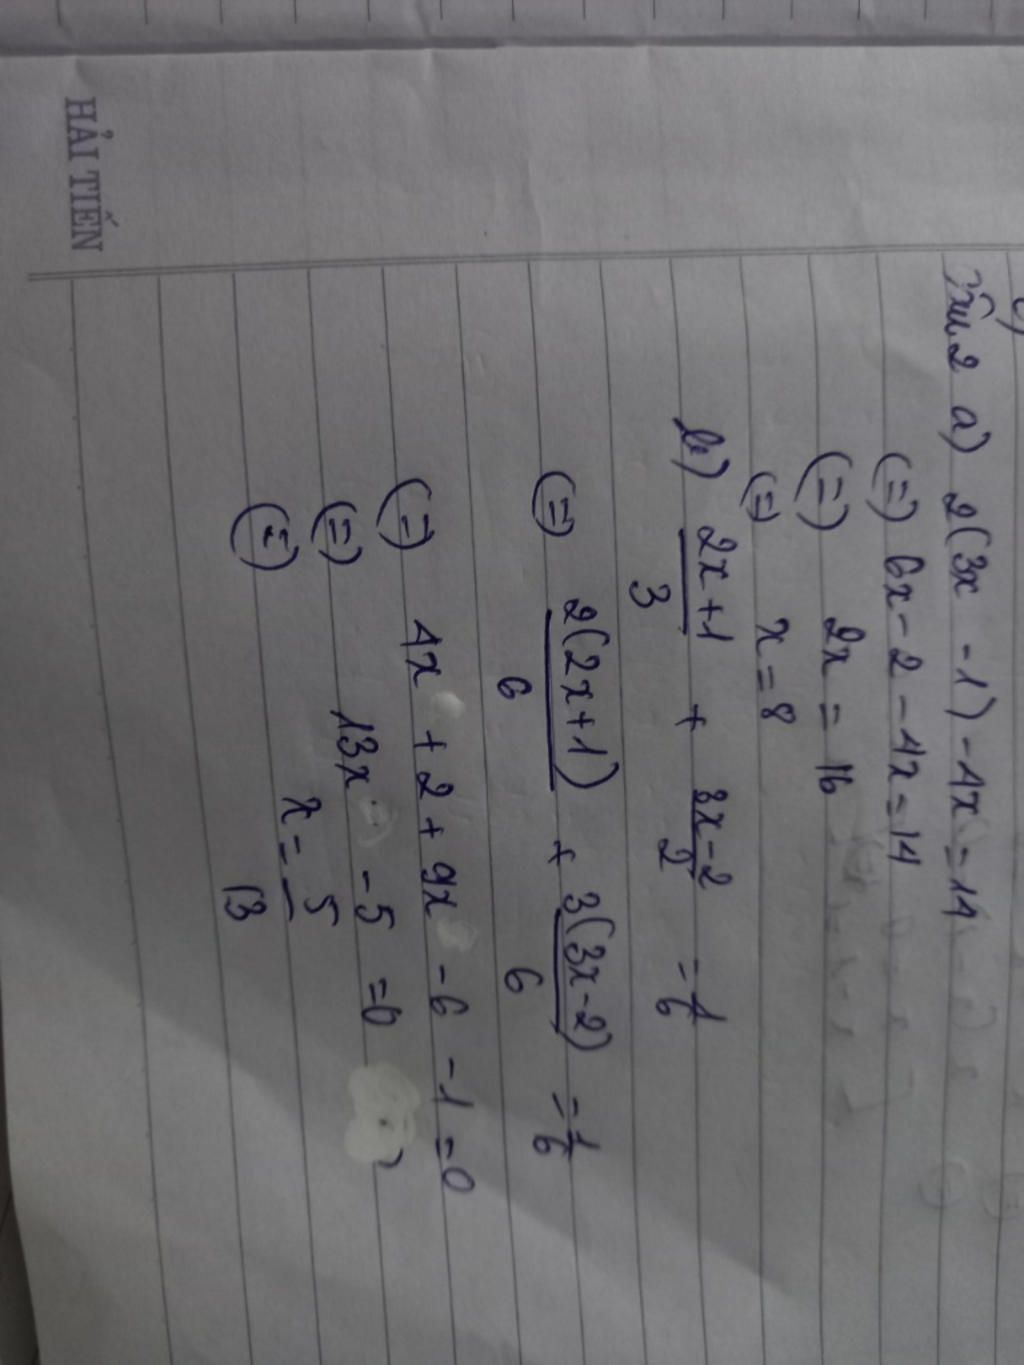 Câu 2 a) 2(3x - 1) - 4x = 14
(=) 6x - 2 - 4x = 14
(=) 2x = 16
(=) x = 8
b) \frac{2x+1}{3} + \frac{3x-2}{2} = \frac{1}{6}
(=) \frac{2(2x+1)}{6} + \frac{3(3x-2)}{6} = \frac{1}{6}
(=) 4x + 2 + 9x - 6 - 1 = 0
(=) 13x - 5 = 0
(=) x = \frac{5}{13}
HẢI TIẾN